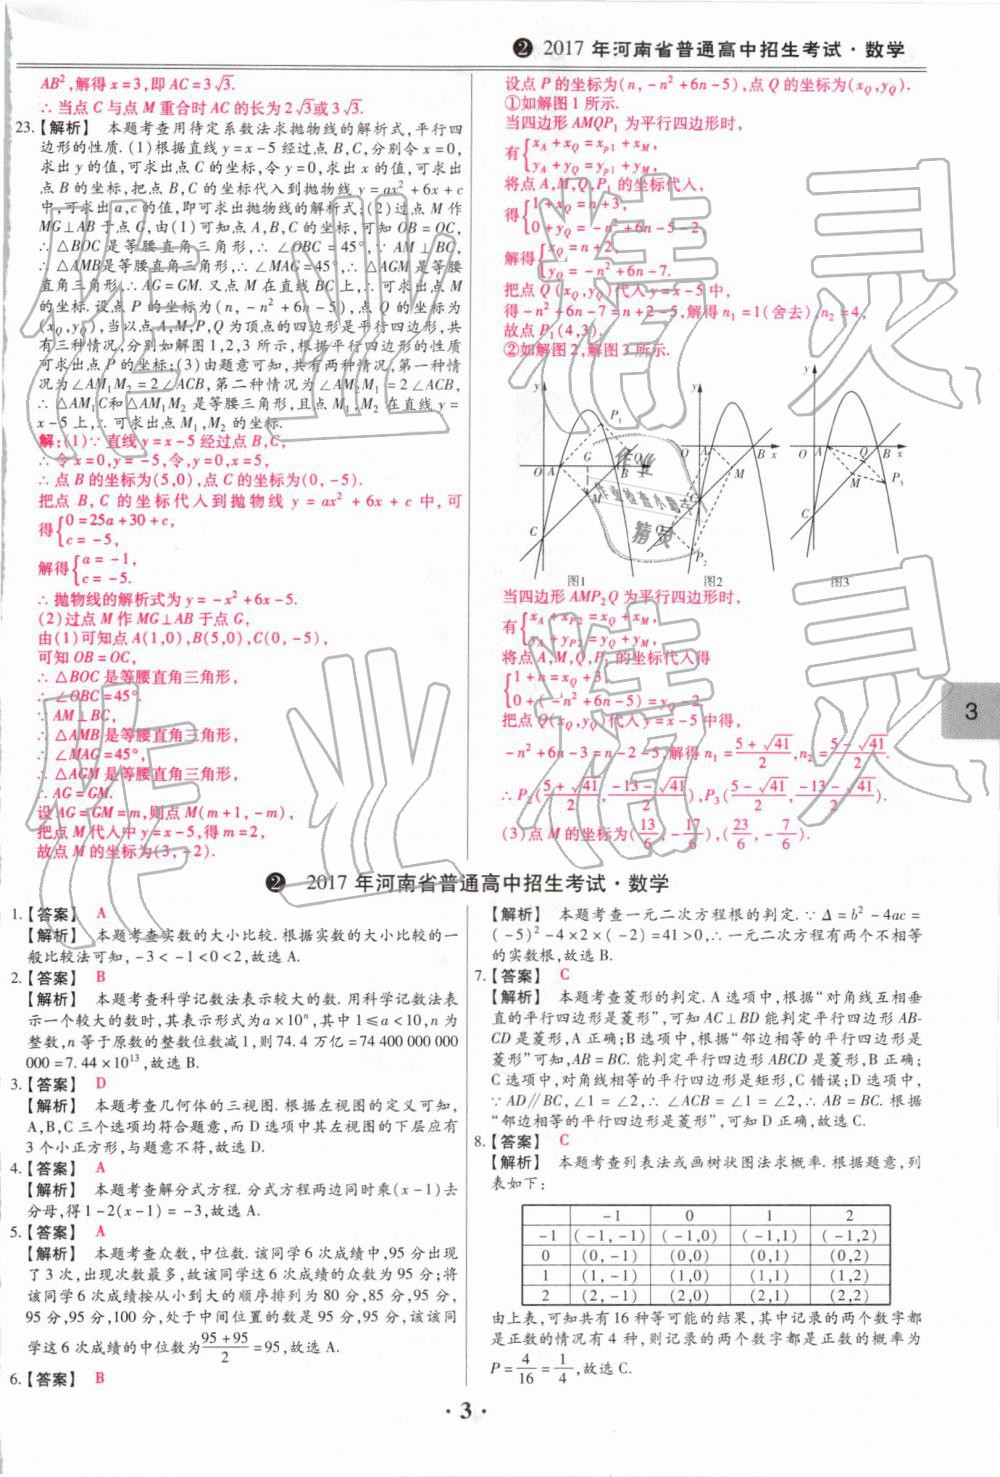 ❷ 2017 年河南省普通高中招生考试·数学
AB²,解得 x=3,即 AC=3√3.
∴当点 C 与点 M 重合时 AC 的长为 2√3或 3√3.
23.【解析】 本题考查用待定系数法求抛物线的解析式,平行四
边形的性质.(1)根据直线 y=x-5 经过点 B,C,分别令 x=0,
求出 y 的值,可求出点 C 的坐标,令 y=0,求出 x 的值,可求出
点 B 的坐标,把点 B,C 的坐标代入到抛物线 y=ax²+6x+c
中,可求出 a,c 的值,即可求出抛物线的解析式;(2)过点 M 作
MG⊥AB 于点 G,由(1)可知点 A,B,C 的坐标,可知 OB=OC,
∴△BOC 是等腰直角三角形,∴∠OBC=45°,∵AM⊥BC,
∴△AMB是等腰直角三角形,∴∠MAG=45°,∴△AGM 是等腰
直角三角形,∴AG=GM.又点 M 在直线 BC 上,∴可求出点 M
的坐标.设点 P 的坐标为(n,-n²+6n-5),点 Q 的坐标为
(xQ,yQ),当以点 A,M,P,Q 为顶点的四边形是平行四边形,共
有三种情况,分别如解图 1,2,3 所示,根据平行四边形的性质
可求出点 P 的坐标;(3)由题意可知,共有两种情况,第一种情
况为∠AM₁M₂=2∠ACB,第二种情况为∠AM₂M₁=2∠ACB,
∴△AM₁C和△AM₁M₂ 是等腰三角形,且点 M₁,M₂在直线 y=
x-5 上,∴可求出点 M₁,M₂的坐标.
解:(1)∵直线 y=x-5 经过点 B,C,
∴令 x=0,y=-5,令,y=0,x=5,
∴点 B 的坐标为(5,0),点 C 的坐标为(0,-5).
把点 B,C 的坐标代入到抛物线 y=ax²+6x+c 中,可
得{0=25a+30+c,
c=-5,
解得{a=-1,
c=-5.
∴抛物线的解析式为 y=-x²+6x-5.
(2)过点 M 作 MG⊥AB 于点 G,
由(1)可知点 A(1,0),B(5,0),C(0,-5),
可知 OB=OC,
∴△BOC 是等腰直角三角形,
∴∠OBC=45°
∵AM⊥BC,
∴△AMB 是等腰直角三角形,
∴∠MAG=45°,
∴△AGM 是等腰直角三角形,
∴AG=GM.
设 AG=GM=m,则点 M(m+1,-m),
把点 M 代入中 y=x-5,得 m=2,
故点 M 的坐标为(3,-2).
设点 P 的坐标为(n,-n²+6n-5),点 Q 的坐标为(xQ,yQ).
①如解图 1 所示.
当四边形 AMQP₁ 为平行四边形时,
有{xA+xQ=xp1+xM,
yA+yQ=yp1+yM,
将点 A,M,Q,P₁ 的坐标代入,
得{1+xQ=n+3,
0+yQ=-n²+6n-5-2,
解得{xQ=n+2
yQ=-n²+6n-7.
把点 Q(xQ,yQ)代入 y=x-5 中,
得-n²+6n-7=n+2-5,解得 n₁=1(舍去),n₂=4,
故点 P₁(4,3).
②如解图 2,解图 3 所示.
y P₁ G Q O A B x M C 图1
y A B x M C Q P₂ 图2
y O A Q B x M P₃ C 图3
当四边形 AMP₂Q 为平行四边形时,
有{xA+xP2=xQ+xM,
yA+yP2=yQ+yM,
将点 A,M,Q,P₂ 的坐标代入得
{1+n=xQ+3,
0+(-n²+6n-5)=yQ-2
把点 Q(xQ,yQ)代入 y=x-5 中得,
-n²+6n-3=n-2-5,解得 n₁=(5+√41)/2,n₂=(5-√41)/2.
∴P₂((5+√41)/2,(-13-√41)/2),P₃((5-√41)/2,(-13+√41)/2).
(3)点 M 的坐标为(13/6,-17/6),(23/6,-7/6).
3
❷ 2017 年河南省普通高中招生考试·数学
1.【答案】 A
【解析】 本题考查实数的大小比较.根据实数的大小比较的一
般比较法可知,-3<-1<0<2,故选 A.
2.【答案】 B
【解析】 本题考查科学记数法表示较大的数.用科学记数法表
示一个较大的数时,其表示形式为 a×10ⁿ,其中 1≤a<10,n 为
整数,n 等于原数的整数位数减 1,则 74.4 万亿=74 400 000 000
000=7.44×10¹³,故选 B.
3.【答案】 D
【解析】 本题考查几何体的三视图.根据左视图的定义可知,
A,B,C 三个选项均符合题意,而 D 选项中其左视图的下层应有
3 个小正方形,与题意不符,故选 D.
4.【答案】 A
【解析】 本题考查解分式方程.分式方程两边同时乘(x-1)去
分母,得 1-2(x-1)=-3,故选 A.
5.【答案】 A
【解析】 本题考查众数,中位数.该同学 6 次成绩中,95 分出现
了 3 次,出现次数最多,故该同学这 6 次成绩的众数为 95 分;将
该同学 6 次成绩按从小到大的顺序排列为 80 分,85 分,95 分,
95 分,95 分,100 分,处于中间位置的数是 95 分,95 分,该该同
学这 6 次成绩的中位数为(95+95)/2=95,故选 A.
6.【答案】 B
【解析】 本题考查一元二次方程根的判定.∵Δ=b²-4ac=
(-5)²-4×2×(-2)=41>0,∴一元二次方程有两个不相等
的实数根,故选 B.
7.【答案】 C
【解析】 本题考查菱形的判定.A 选项中,根据“对角线互相垂
直的平行四边形是菱形”,可知 AC⊥BD 能判定平行四边形 AB-
CD 是菱形,A 正确;B 选项中,根据“邻边相等的平行四边形是
菱形”可知,AB=BC.能判定平行四边形 ABCD 是菱形,B 正确;
C 选项中,对角线相等的平行四边形是矩形,C 错误;D 选项中,
∵AD∥BC,∠1=∠2,∴∠ACB=∠1=∠2,∴AB=BC.根据
“邻边相等的平行四边形是菱形”,可知 D 正确,故选 C.
8.【答案】 C
【解析】 本题考查列表法或画树状图法求概率.根据题意,列
表如下:
-1 0 1 2
-1 (-1,-1) (-1,0) (-1,1) (-1,2)
0 (0,-1) (0,0) (0,1) (0,2)
1 (1,-1) (1,0) (1,1) (1,2)
2 (2,-1) (2,0) (2,1) (2,2)
由上表,可知共有 16 种等可能的结果,其中记录的两个数字都
是正数的情况有 4 种,则记录的两个数字都是正数的概率为
P=4/16=1/4,故选 C.
·3·
作业精灵
作业精灵
作业
作业检查小助手
精灵